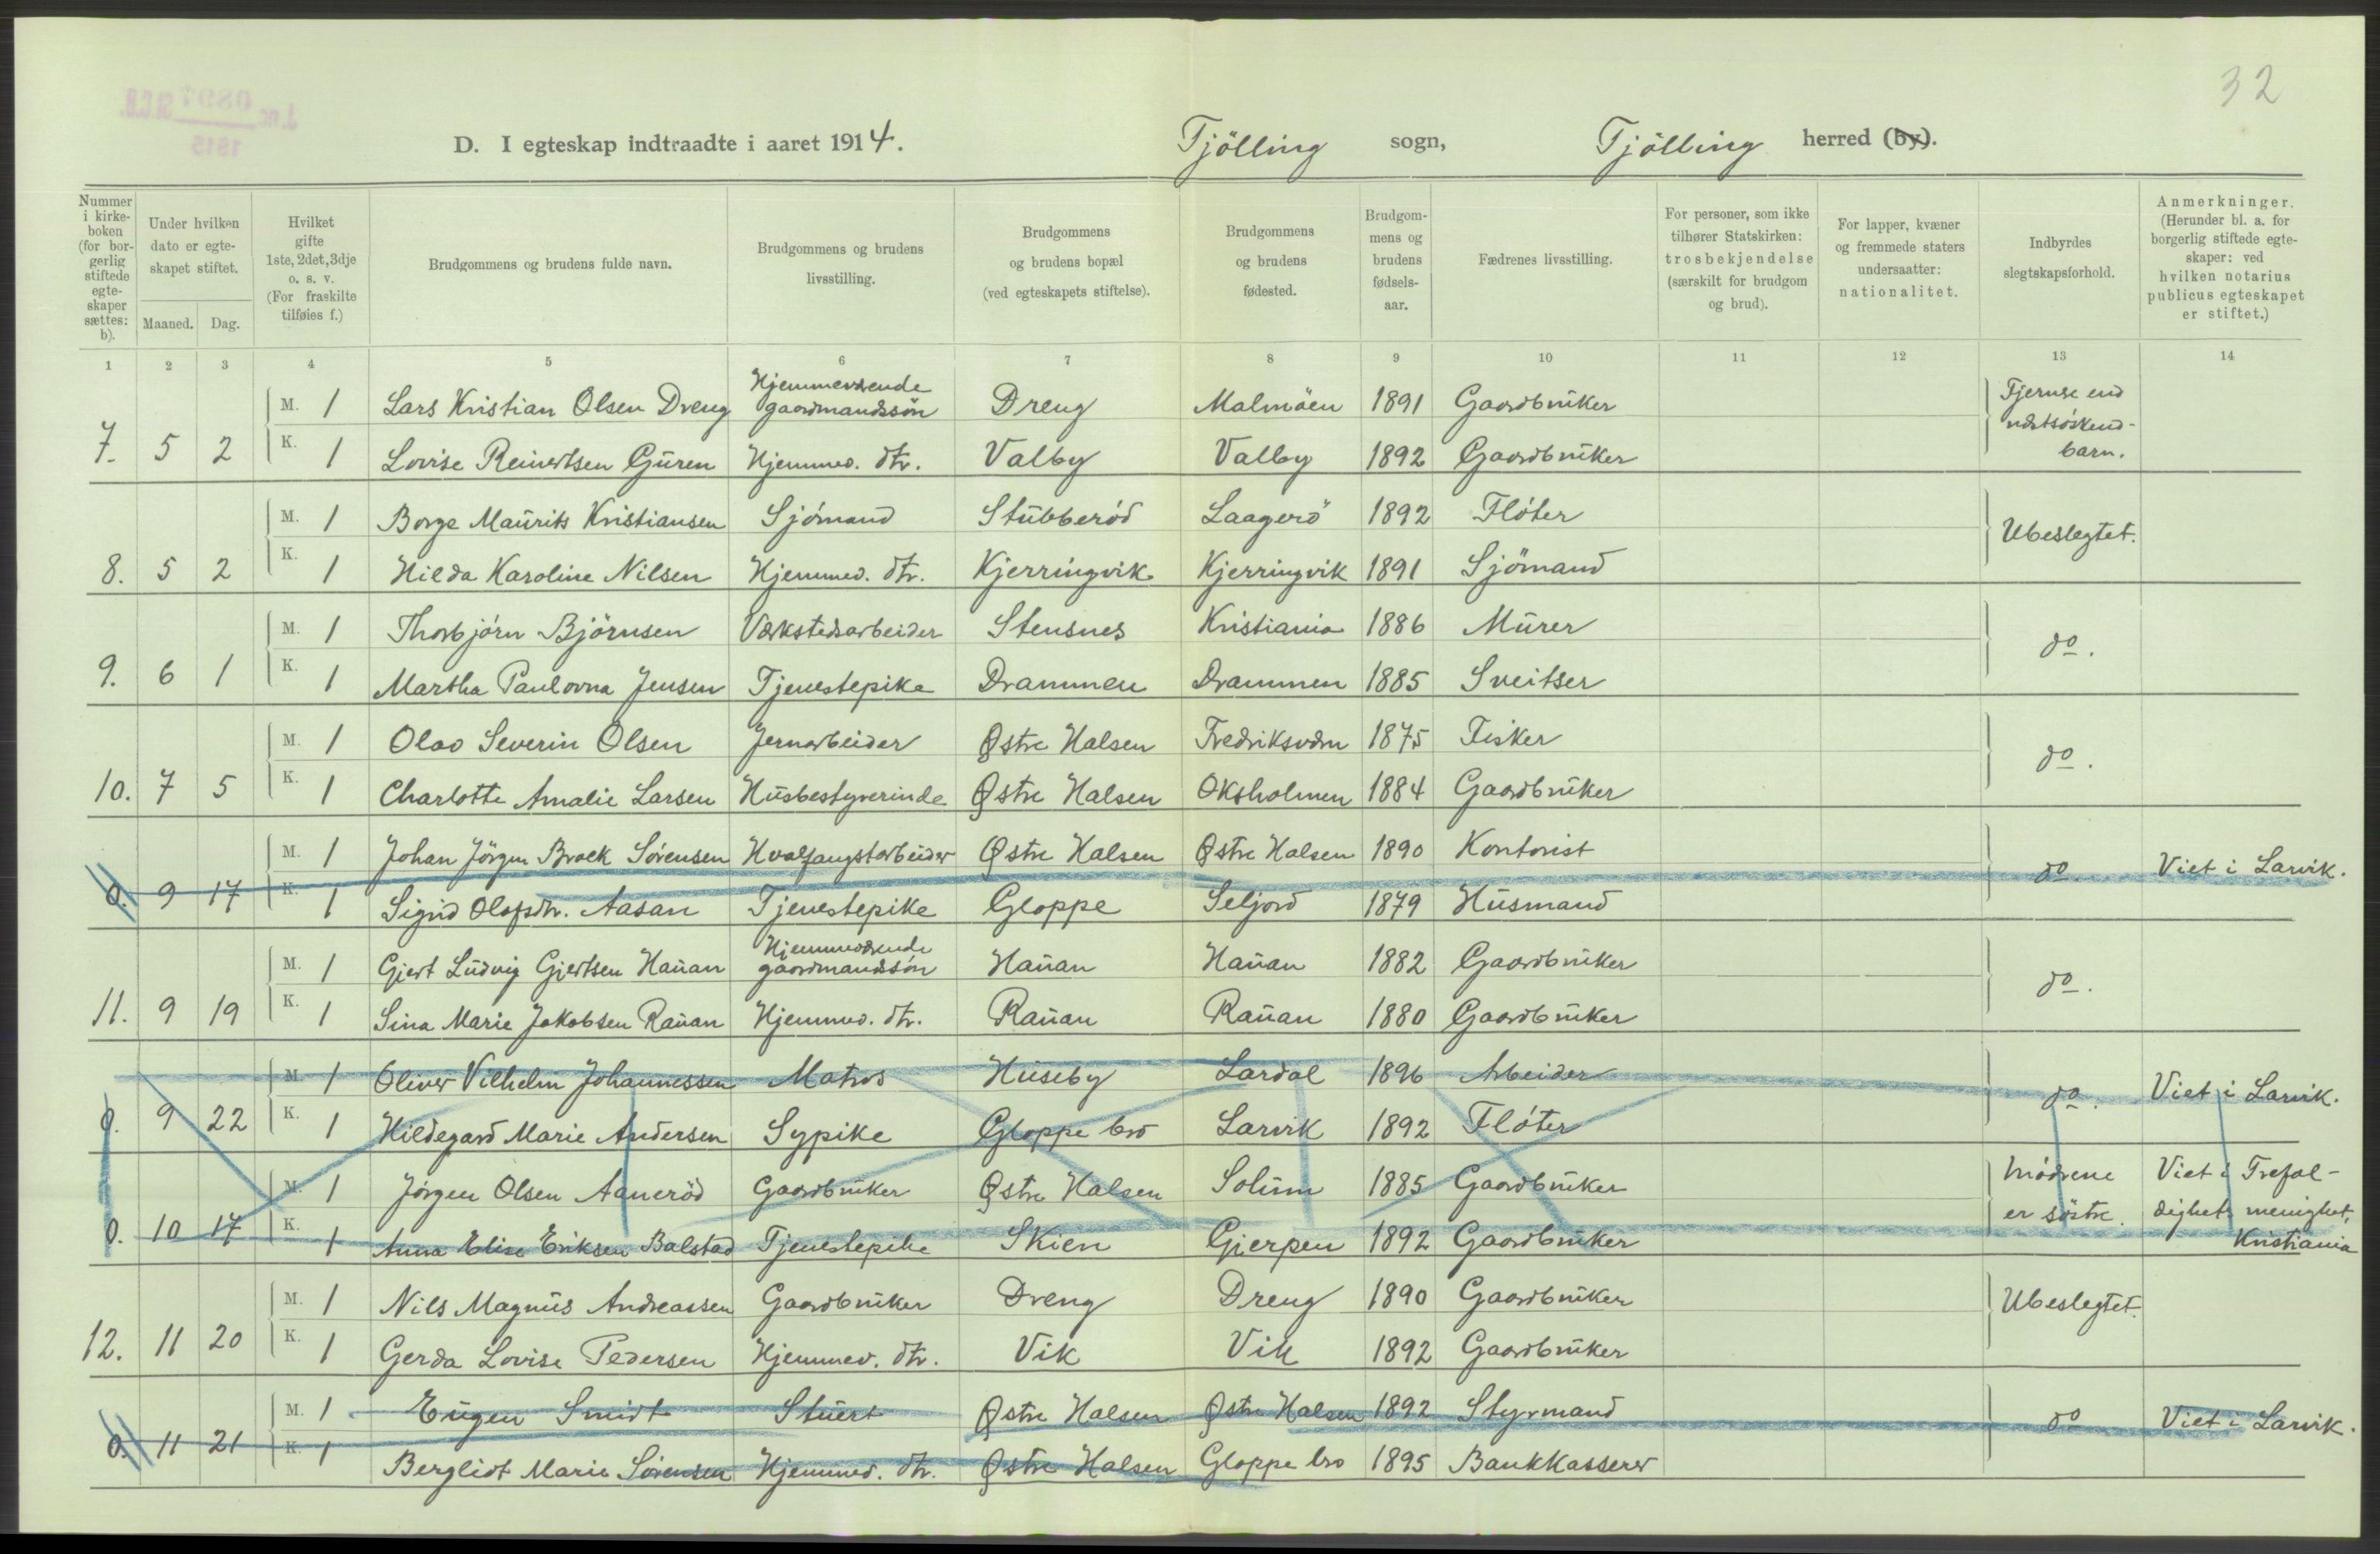 32
J. nr. 0897 St.C.B.
1915
D. I egteskap indtraadte i aaret 1914. Tjölling sogn, Tjölling herred (by).
Nummer i kirkeboken (for borgerlig stiftede egteskaper sættes: b).
Under hvilken dato er egteskapet stiftet.
Maaned. Dag.
Hvilket gifte 1ste, 2det, 3dje o. s. v. (For fraskilte tilføies f.)
Brudgommens og brudens fulde navn.
Brudgommens og brudens livsstilling.
Brudgommens og brudens bopæl (ved egteskapets stiftelse).
Brudgommens og brudens fødested.
Brudgommens og brudens fødselsaar.
Fædrenes livsstilling.
For personer, som ikke tilhører Statskirken: trosbekjendelse (særskilt for brudgom og brud).
For lapper, kvæner og fremmede staters undersaatter: nationalitet.
Indbyrdes slegtskapsforhold.
Anmerkninger. (Herunder bl. a. for borgerlig stiftede egteskaper: ved hvilken notarius publicus egteskapet er stiftet.)
1 2 3 4 5 6 7 8 9 10 11 12 13 14
M. 1 Lars Kristian Olsen Dreng Hjemmeværende gaardmandssön Dreng Malmöen 1891 Gaardbruker Fjernere end næstsöskend-barn.
7. 5 2 K. 1 Lovise Reinertsen Guren Hjemmev. dtr. Valby Valby 1892 Gaardbruker
M. 1 Borge Maurits Kristiansen Sjómand Stubberód Laagerö 1892 Flóter Ubeslegtet.
8. 5 2 K. 1 Hilda Karoline Nilsen Hjemmev. dtr. Kjerringvik Kjerringvik 1891 Sjömand
M. 1 Thorbjórn Björnsen Værkstedsarbeider Stensnes Kristiania 1886 Murer do.
9. 6 1 K. 1 Martha Paulovna Jensen Tjenestepike Drammen Drammen 1885 Sveitser
M. 1 Olav Severin Olsen Jernarbeider Østre Halsen Fredriksværn 1875 Fisker do.
10. 7 5 K. 1 Charlotte Amalie Larsen Husbestyrerinde Østre Halsen Oksholmen 1884 Gaardbruker
M. 1 Johan Jörgen Brock Sörensen Hvalfangstarbeider Østre Halsen Østre Halsen 1890 Kontorist do. Viet i Larvik.
0. 9 17 K. 1 Sigrid Olafsdtr. Aasan Tjenestepike Gloppe Seljord 1879 Husmand
M. 1 Gjert Ludvig Gjertsen Hauan Hjemmeværende gaardmandssón Hauan Hauan 1882 Gaardbruker do.
11. 9 19 K. 1 Sina Marie Jakobsen Rauan Hjemmev. dtr. Rauan Rauan 1880 Gaardbruker
M. 1 Oliver Vilhelm Johannessen Matros Huseby Lardal 1896 Arbeider do. Viet i Larvik.
0. 9 22 K. 1 Hildegard Marie Andersen Sypike Gloppe bro Larvik 1892 Flóter
M. 1 Jörgen Olsen Aaneröd Gaardbruker Østre Halsen Solum 1885 Gaardbruker Mödrene er söstre. Viet i Trefol-dighets menighet, Kristiania
0. 10 17 K. 1 Anna Elise Eriksen Balstad Tjenestepike Skien Gjerpen 1892 Gaardbruker
M. 1 Nils Magnus Andreassen Gaardbruker Dreng Dreng 1890 Gaardbruker Ubeslegtet.
12. 11 20 K. 1 Gerda Lovise Pedersen Hjemmev. dtr. Vik Vik 1892 Gaardbruker
M. 1 Eugen Smidt Stuert Østre Halsen Østre Halsen 1892 Styrmand do Viet i Larvik.
0. 11 21 K. 1 Bergliot Marie Sörensen Hjemmev. dtr. Østre Halsen Gloppe bro 1895 Bankkasserer